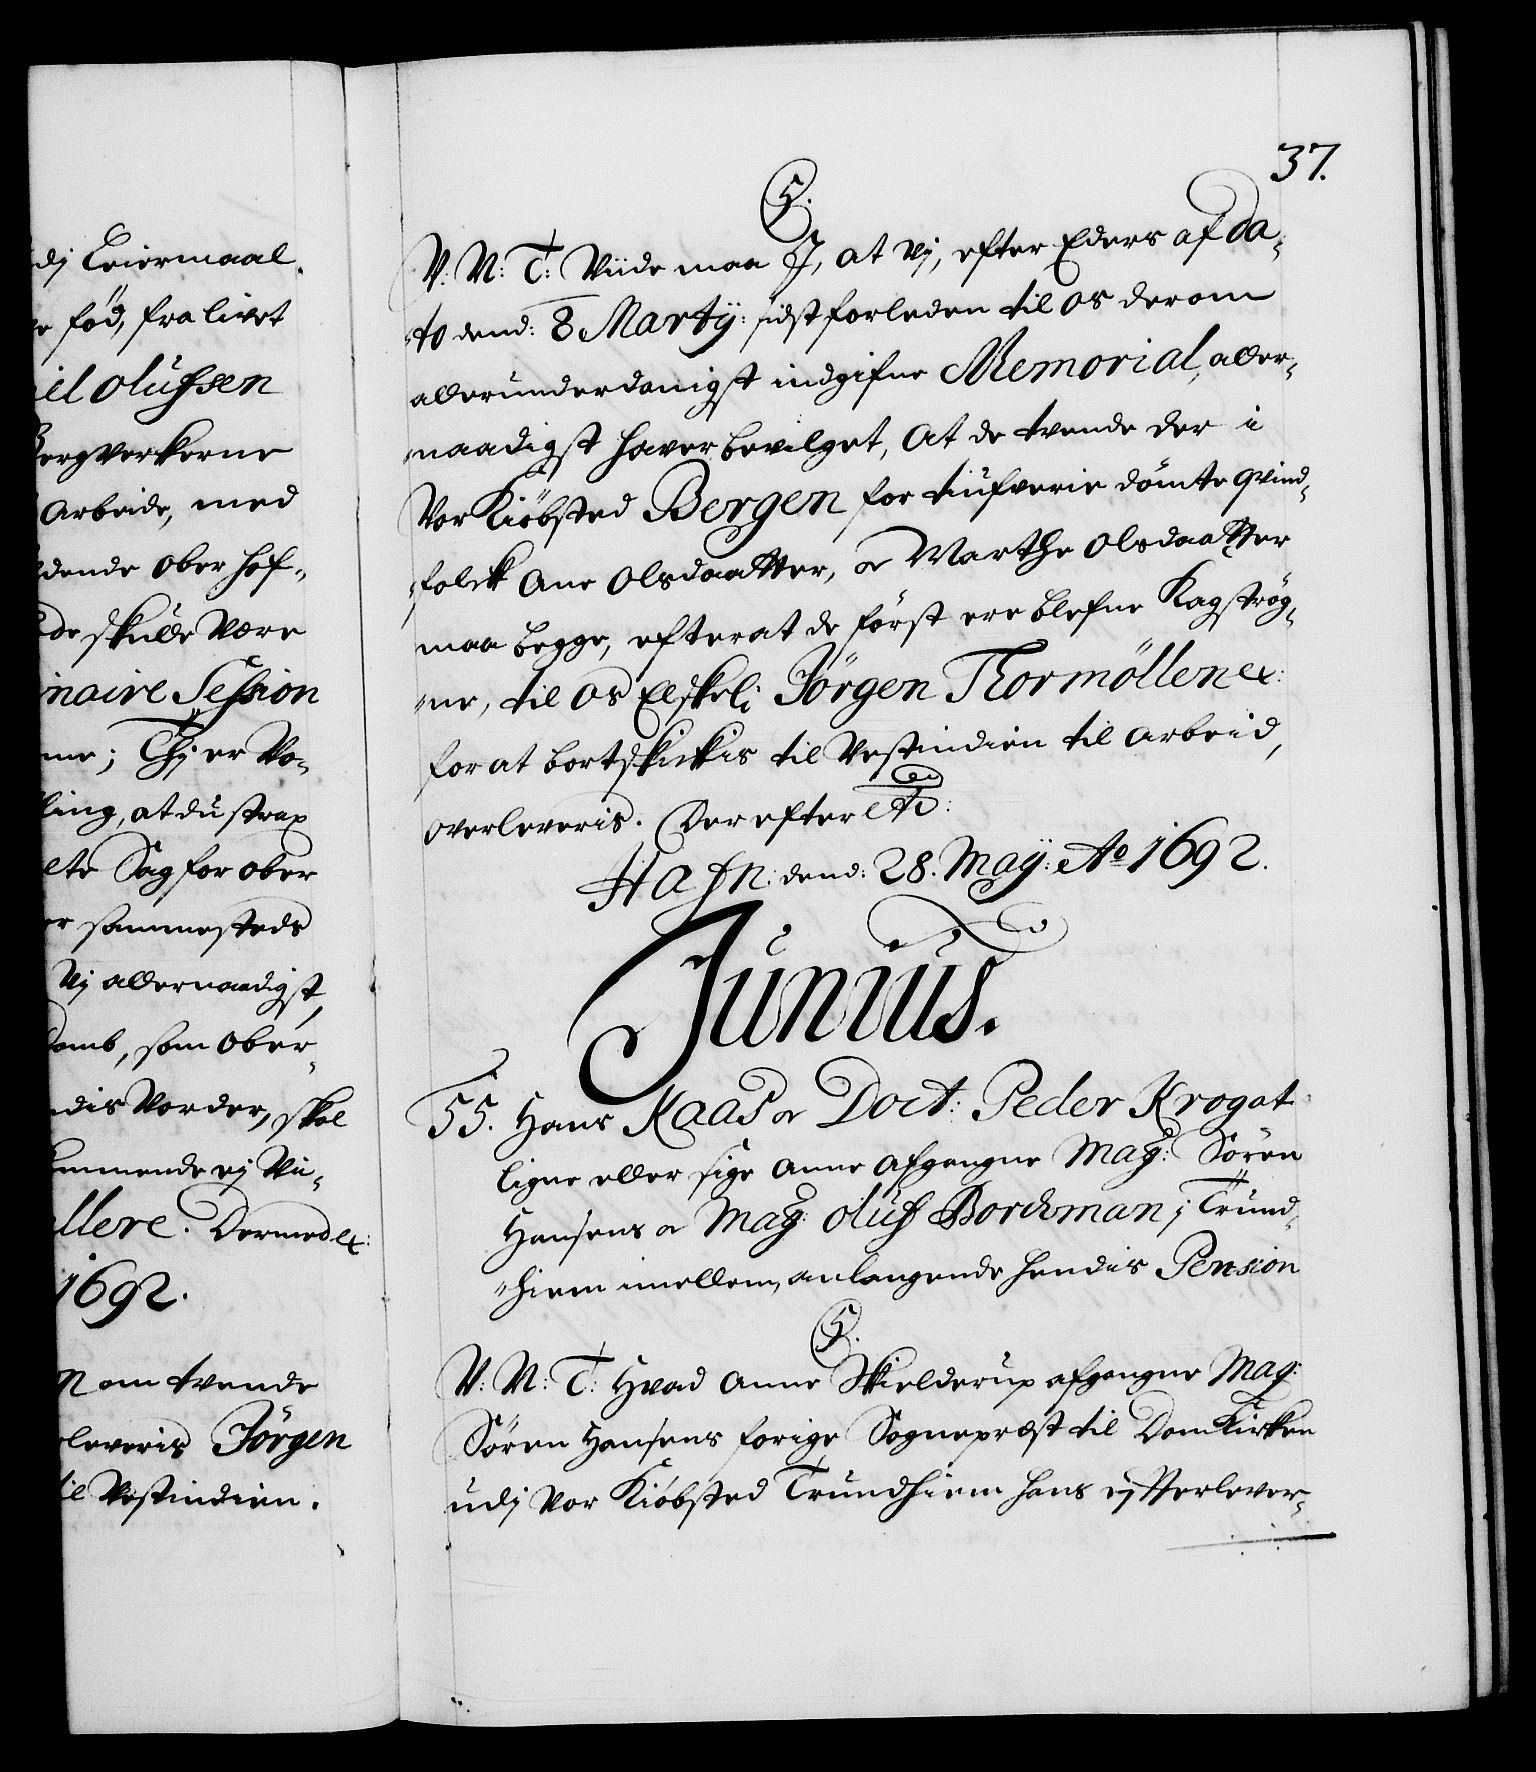 dj Leiermaal.
e fød, fra livet
iel olufsen
Bergverkerne
Arbeide, med
dende Ober hof-
de skulle Være
naire Session
me; Thj er Vo-
ling, at du strax
lte Sag for Ober
er sammesteds
Vj allernaadigst,
Domb, som Ober-
ndis Vorder, skal
mmende ej Vii-
llere. Dermed etc:
1692.
n om tvende
leveris Jörgen
til Vestindien.
37.
C5.
V: N: T: Viide maa I, at Vj, efter Eders af Da-
to dend: 8 Martij: sidstforleden til Os derom
allerunderdanigst indgifne Memorial, aller-
naadigst haver bevilget, At de tvende der i
Vor Kiöbsted Bergen for tiufverie dömte qvind-
folck Ane Olsdaatter, oc Marthe Olsdaatter
maa begge, efterat de först ere blefne Kagströg-
ne, til Os Elskeli Jörgen Thormöllen etc:
for at bortskickis til Vestindien til Arbeid,
overleveris. Der efter etc:
Hafn: dend: 28. Maij: Ao 1692.
Junius.
55. Hans Kaas oc Doct: Peder Krog at
ligne eller sige Anne Afgangne Mag: Sören
Hansens oc Mag: Oluf Borchman, i Trund-
hiem imellem, anlangende hendis Pension
C5.
V: N: T: Hvad Anne Skielderup afgangne Mag:
Sören Hansens forige Sognepræst til Dom Kircken
udj Vor Kiöbsted Trundhiem hans efterlever-